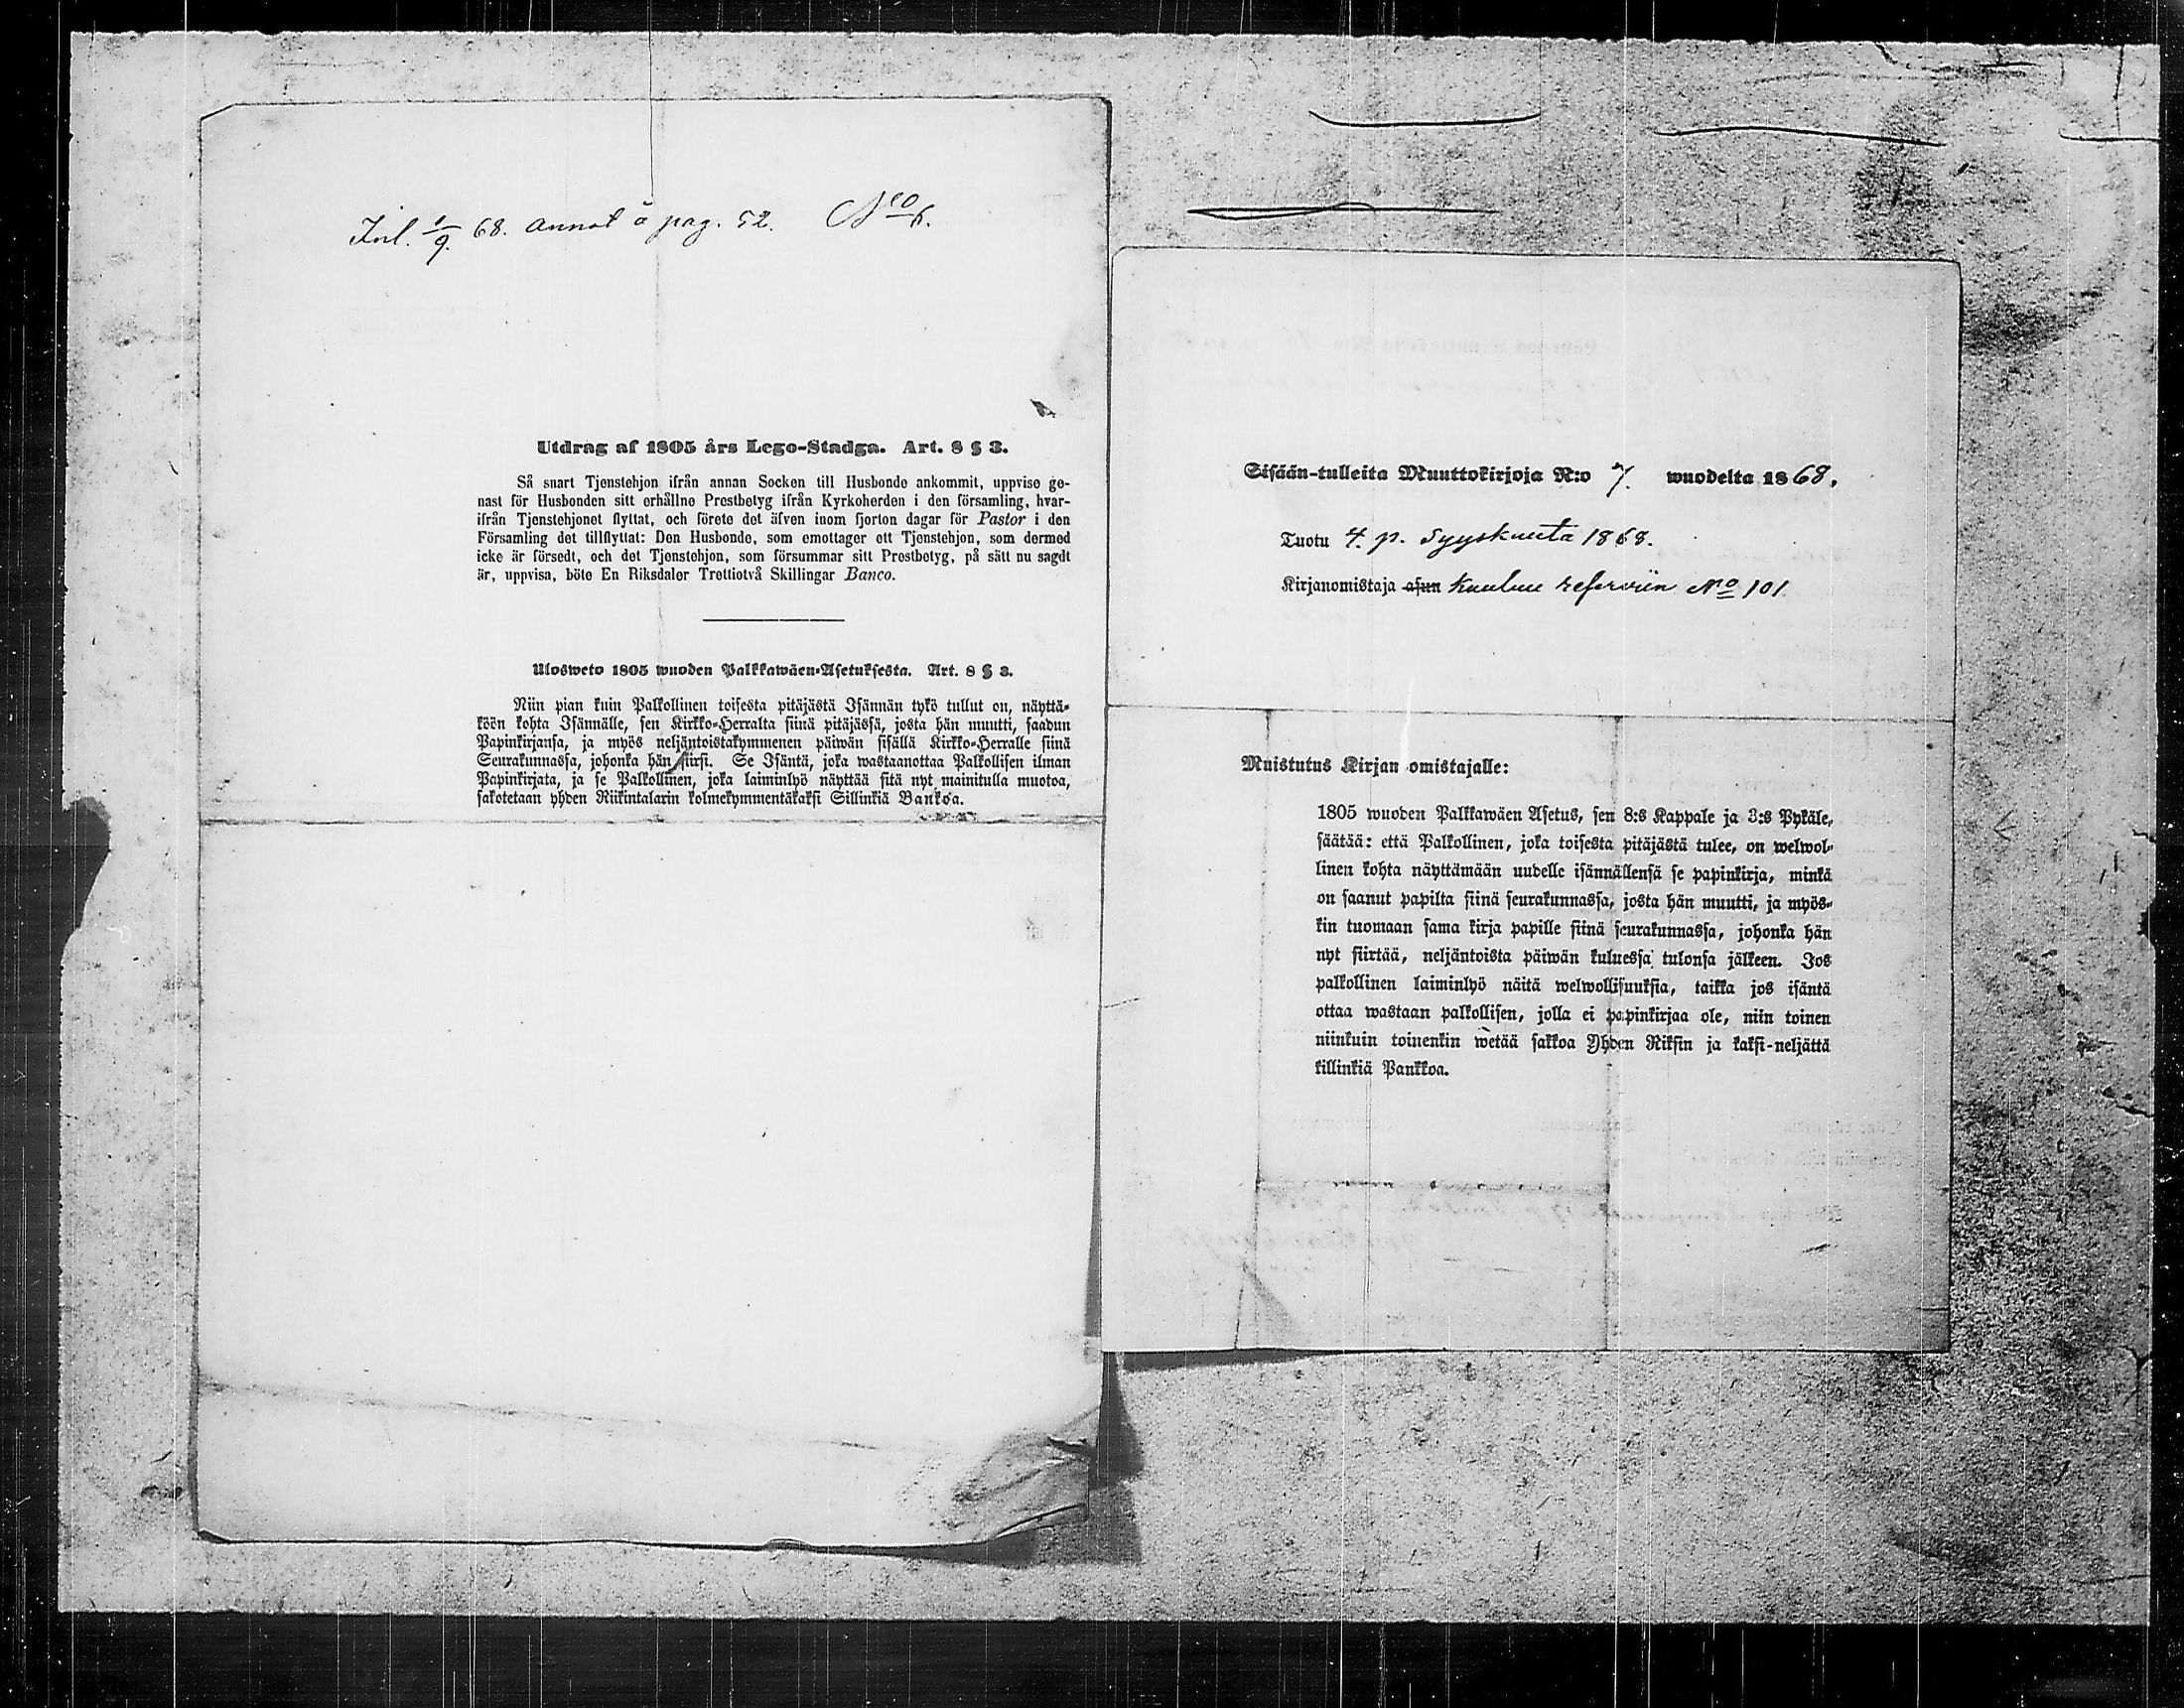 Inl. 1/9. 68. annot å pag. 52. No 6.
Utdrag af 1805 års Lego-Stadga. Art. 8 § 3.
Så snart Tjenstehjon ifrån annan Socken till Husbonde ankommit, uppvise ge-
nast för Husbonden sitt erhållne Prestbetyg ifrån Kyrkoherden i den församling, hvar-
ifrån Tjenstehjonet flyttat, och förete det äfven inom fjorton dagar för Pastor i den
Församling det tillflyttat: Den Husbonde, som emottager ett Tjenstehjon, som dermed
icke är försedt, och det Tjenstehjon, som försummar sitt Prestbetyg, på sätt nu sagdt
är, uppvisa, böte En Riksdaler Trettiotvå Skillingar Banco.
Ulosweto 1805 wuoden Palkkawäen-Asetuksesta. Art. 8 § 3.
Niin pian kuin Palkollinen toisesta pitäjästä Isännän tykö tullut on, näyttä-
köön kohta Isännälle, sen Kirkko-Herralta siinä pitäjässä, josta hän muutti, saadun
Papinkirjansa, ja myös neljäntoistakymmenen päiwän sisällä Kirkko-Herralle siinä
Seurakunnassa, johonka hän siirsi. Se Isäntä, joka wastaanottaa Palkollisen ilman
Papinkirjata, ja se Palkollinen, joka laiminlyö näyttää sitä nyt mainitulla muotoa,
sakotetaan yhden Riikintalarin kolmekymmentäkaksi Sillinkiä Bankoa.
Sisään-tulleita Muuttokirjoja N:o 7. wuodelta 1868.
Tuotu 4. p. Syyskuuta 1868.
Kirjanomistaja asuu kuuluu reserviin No 101
Muistutus Kirjan omistajalle:
1805 wuoden Palkkawäen Asetus, sen 8:s Kappale ja 3:s Pykäle,
säätää: että Palkollinen, joka toisesta pitäjästä tulee, on welwol-
linen kohta näyttämään uudelle isännällensä se papinkirja, minkä
on saanut papilta siinä seurakunnassa, josta hän muutti, ja myös-
kin tuomaan sama kirja papille siinä seurakunnassa, johonka hän
nyt siirtää, neljäntoista päiwän kuluessa tulonsa jälkeen. Jos
palkollinen laiminlyö näitä welwollisuuksia, taikka jos isäntä
ottaa wastaan palkollisen, jolla ei papinkirjaa ole, niin toinen
niinkuin toinenkin wetää sakkoa Yhden Riksin ja kaksi-neljättä
killinkiä Pankkoa.